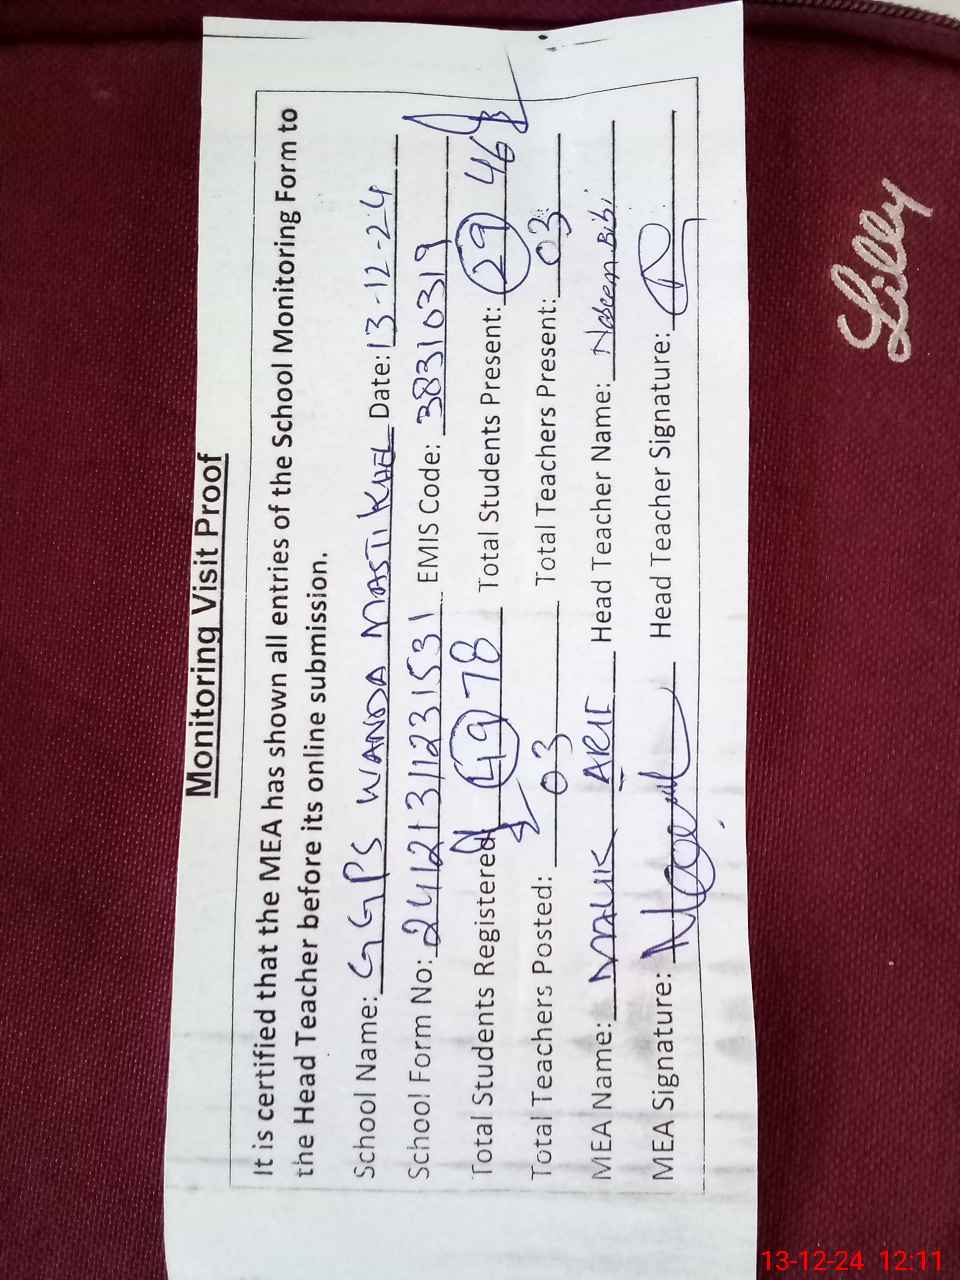 Monitoring Visit Proof
It is certified that the MEA has shown all entries of the School Monitoring Form to
the Head Teacher before its online submission.
School Name: GGPS WANDA MASTI KHEL Date: 13-12-24
School Form No: 24121311231531 EMIS Code: 38310319
Total Students Registered: 49 78 Total Students Present: 29 46
Total Teachers Posted: 03 Total Teachers Present: 03
MEA Name: MALIK ARIF Head Teacher Name: Naseem Bibi
MEA Signature: Head Teacher Signature:
Lilly
13-12-24 12:11